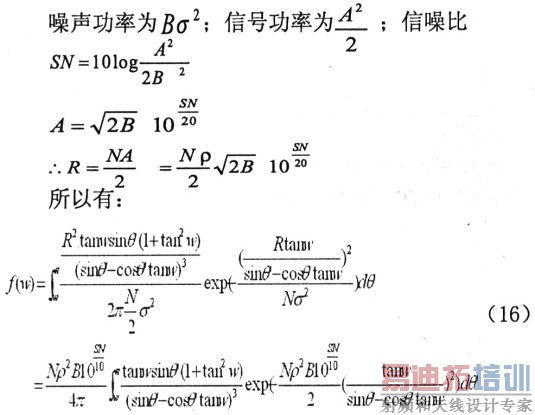 噪声功率为 Bσ²；信号功率为 A²/2 ；信噪比
SN = 10log A²/2B ²
A = √2B 10^(SN/20)
∴ R = NA/2 = Nρ/2 √2B 10^(SN/20)
所以有：
f(w)=∫ R²tanwsinθ(1+tan²w)/(sinθ-cosθtanw)³ / 2π N/2 σ² exp(-(Rtanw/sinθ-cosθtanw)²/Nσ²)dθ
(16)
= Nρ²B10^(SN/10)/4π ∫ tanwsinθ(1+tan²w)/(sinθ-cosθtanw)³ exp(-Nρ²B10^(SN/10)/2 (tanw/sinθ-cosθtanw)²)dθ
易迪拓培训
射频和天线设计专家